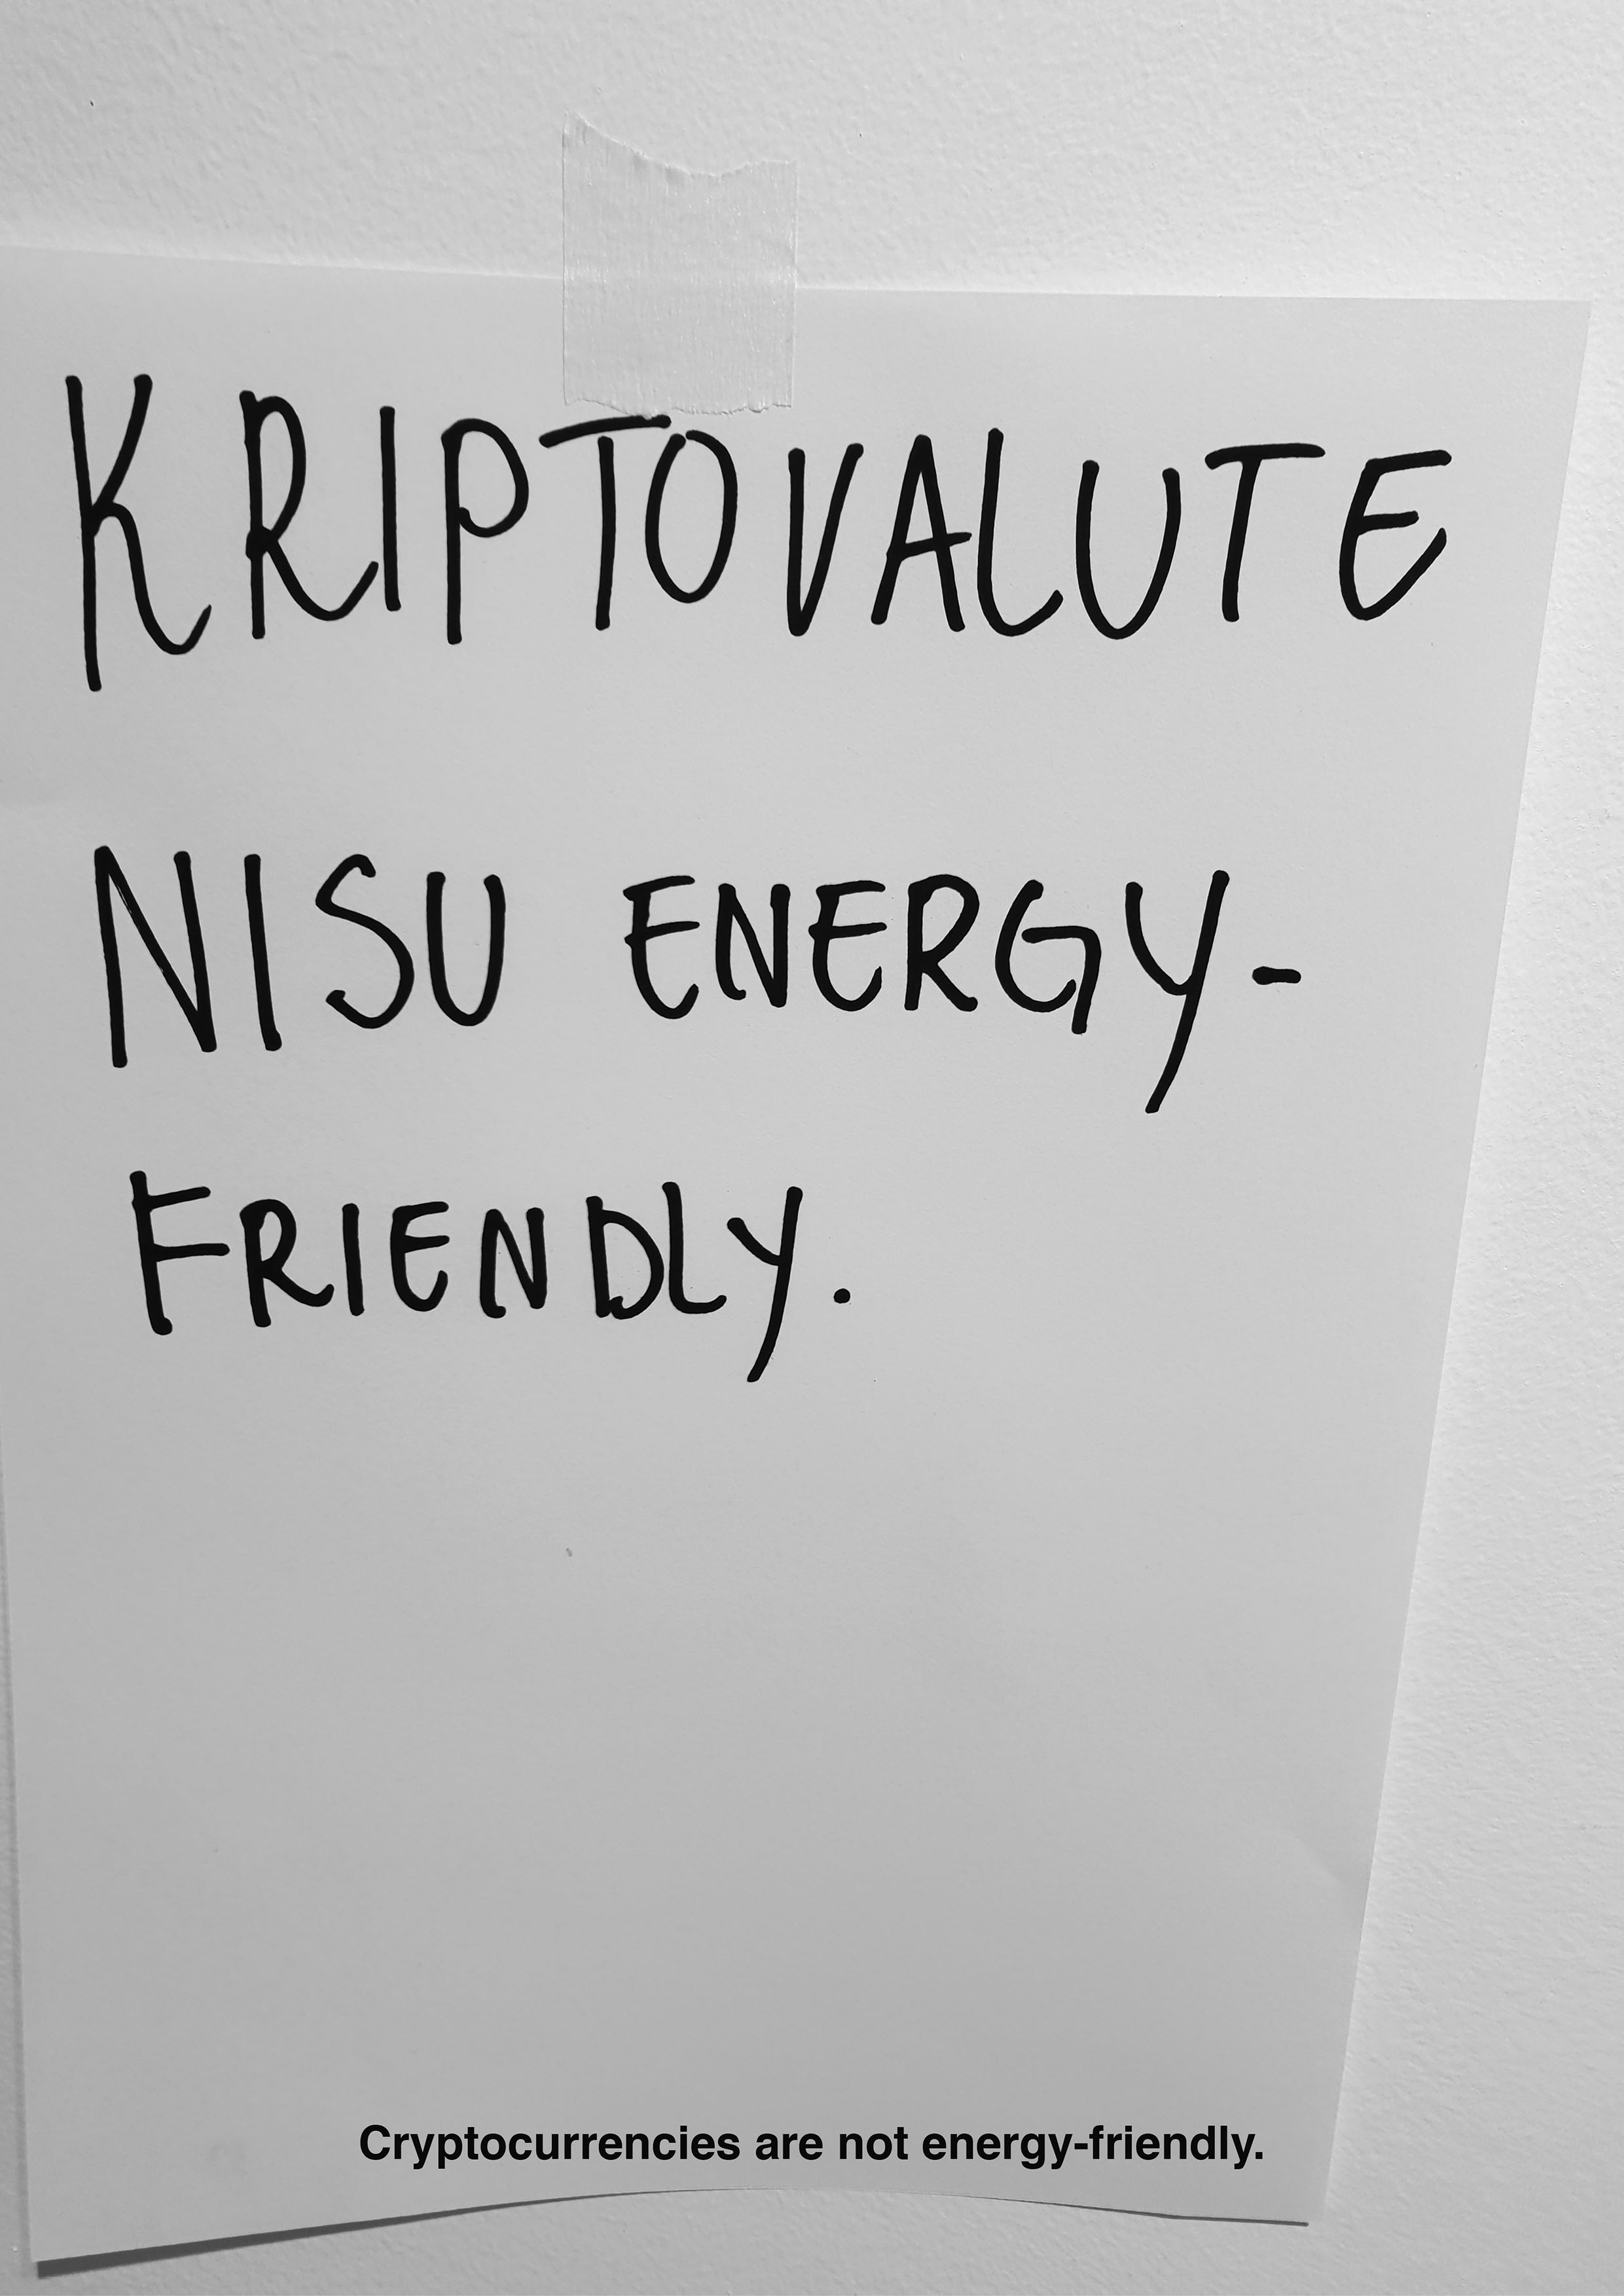 KRIPTOVALUTE
NISU ENERGY-
FRIENDLY.
Cryptocurrencies are not energy-friendly.